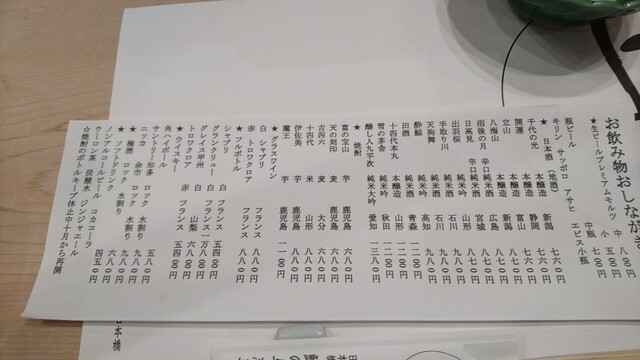 お飲み物おしながき
★生ビールプレミアムモルツ 中 八〇〇円
小 五〇〇円
瓶ビール 中瓶 七〇〇円
キリン サッポロ アサヒ エビス小瓶
★ 日本酒 (地酒)
千代の光 本醸造 新潟 七六〇円
開運 本醸造 静岡 七六〇円
立山 本醸造 富山 七六〇円
八海山 本醸造 新潟 八七〇円
雨後の月 辛口純米酒 広島 八七〇円
日高見 辛口純米酒 宮城 八七〇円
出羽桜 純米吟 山形 八七〇円
手取り川 純米吟 石川 九八〇円
天狗舞 純米酒 石川 九八〇円
酔鯨 純米吟 高知 九八〇円
田酒 純米酒 青森 一二〇〇円
十四代本丸 本醸造 山形 一二〇〇円
雪の茅舎 純米大吟 秋田 一二〇〇円
醸し人九平次 純米大吟 愛知 一三八〇円
★ 焼酎
富の宝山 芋 鹿児島 六八〇円
天の刻印 麦 鹿児島 六八〇円
吉四六 麦 大分 六八〇円
十四代 米 山形 八八〇円
伊佐美 芋 鹿児島 八八〇円
魔王 芋 鹿児島 一一〇〇円
★ グラスワイン
白 シャブリ フランス 八八〇円
赤 トロワクロア フランス 八八〇円
★ フルボトル
シャブリ 白 フランス 五四〇〇円
グランクリュー 白 フランス 一万八〇〇円
グレイス甲州 白 山梨 六八〇〇円
トロワクロア 赤 フランス 五四〇〇円
★ ウイスキー
角ハイボール 五八〇円
サントリー知多 ロック 水割り 九八〇円
ニッカ 余市 ロック 水割り 九八〇円
★ 梅酒 ロック 水割り 六八〇円
★ ソフトドリンク
ノンアルコールビール コカコーラ
ウーロン茶 炭酸水 ジンジャエール 四五〇円
☆焼酎のボトルキープ休止中十月から再開
日本橋